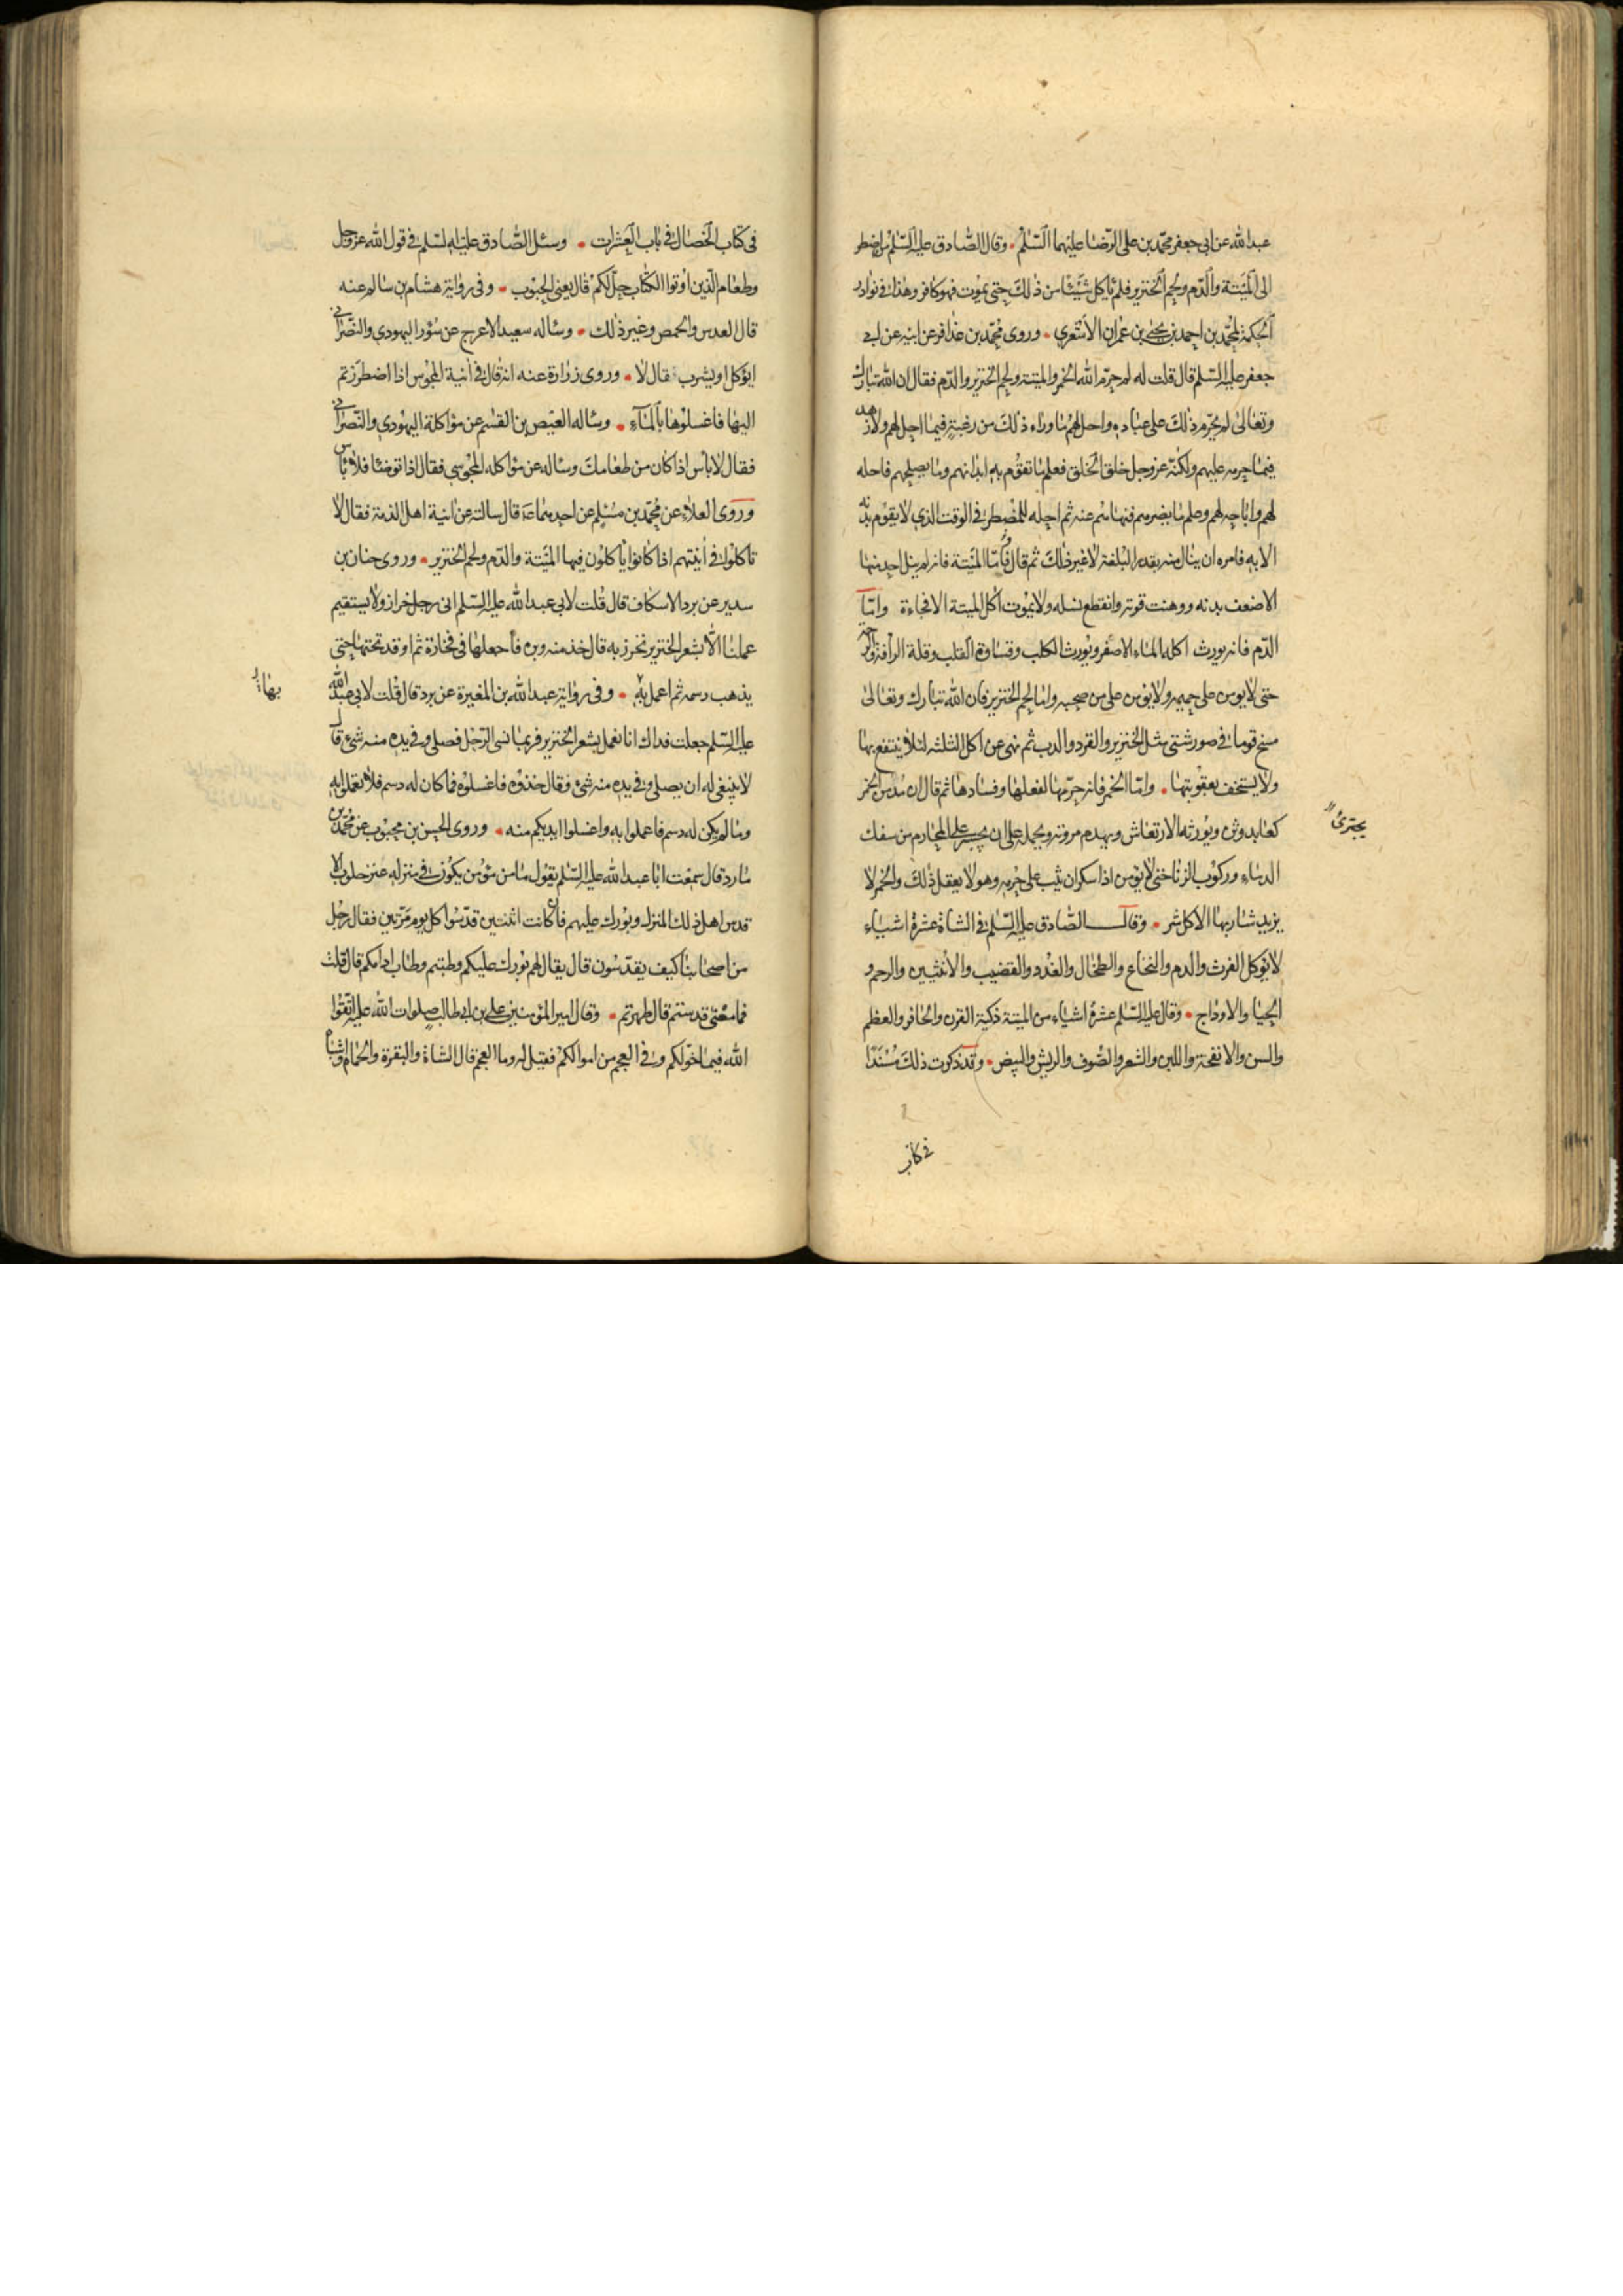 عبد الله عن ابى جعفر محمد بن على الرضا عليهما السلم وقال الصادق عليه السلم من اضطر
الى الميتة والدم ولحم الخنزير فلم ياكل شيئا من ذلك حتى يموت فهو كافر وهذا فى نوادر
الحكمة لمحمد بن احمد بن يحيى بن عمران الاشعرى وروى محمد بن عذافر عن ابيه عن ابى
جعفر عليه السلم قال قلت له لم حرم الله الخمر والميتة ولحم الخنزير والدم فقال ان الله تبارك
وتعالى لم يحرم ذلك على عباده واحل لهم ما وراء ذلك من رغبة فيما احل لهم ولا زهد
فيما حرمه عليهم ولكنه عز وجل خلق الخلق فعلم ما تقوم به ابدانهم وما يصلحهم فاحله
لهم واباحه لهم وعلم ما يضرهم فنهاهم عنه ثم احله للمضطر فى الوقت الذى لا يقوم بدنه
الا به فامره ان ينال منه بقدر البلغة لا غير ذلك ثم قال واما الميتة فانه لم ينل احد منها
الا ضعف بدنه ووهنت قوته وانقطع نسله ولا يموت آكل الميتة الا فجاءة واما
الدم فانه يورث اكله الماء الاصفر ويورث الكلب وقساوة القلب وقلة الرأفة والرحمة
حتى لا يومن على حميمه ولا يؤمن على من صحبه واما لحم الخنزير فان الله تبارك وتعالى
مسخ قوما فى صور شتى مثل الخنزير والقرد والدب ثم نهى عن اكل الثلثه لئلا ينتفع بها
ولا يستخف بعقوبتها واما الخمر فانه حرمها لفعلها وفسادها ثم قال ان مدمن الخمر
كعابد وثن ويورثه الارتعاش ويهدم مروته ويحمله على ان يجسر على المحارم من سفك
يجترئ
الدماء وركوب الزنا حتى لا يؤمن اذا سكر ان يثب على حرمه وهو لا يعقل ذلك والخمر لا
يزيد شاربها الا كل شر وقال الصادق عليه السلم فى الشاة عشرة اشياء
لا يؤكل الفرث والدم والنخاع والطحال والغدد والقضيب والانثيين والرحم و
الحيا والاوداج وقال عليه السلم عشرة اشياء من الميتة ذكية القرن والحافر والعظم
والسن والانفحة واللبن والشعر والصوف والريش والبيض وقد ذكرت ذلك مسندا
فى كتاب
فى كتاب الخصال فى باب العشرات وسئل الصادق عليه السلم فى قول الله عز وجل
وطعام الذين اوتوا الكتاب حل لكم قال يعنى الحبوب وفى رواية هشام بن سالم عنه
قال العدس والحمص وغير ذلك وساله سعيد الاعرج عن سؤر اليهودى والنصرانى
ايؤكل او يشرب فقال لا وروى زرارة عنه انه قال فى آنية المجوس اذا اضطررتم
اليها فاغسلوها بالماء وساله العيص بن القسم عن مؤاكلة اليهودى والنصرانى
فقال لا باس اذا كان من طعامك وساله عن مؤاكله المجوسى فقال اذا توضئا فلا باس
وروى العلاء عن محمد بن مسلم عن احدهما ع قال سالته عن انية اهل الذمة فقال لا
تاكلوا فى آنيتهم اذا كانوا ياكلون فيها الميتة والدم ولحم الخنزير وروى حنان بن
سدير عن برد الاسكاف قال قلت لابى عبد الله عليه السلم انى رجل خراز ولا يستقيم
عملنا الا بشعر الخنزير نخرز به قال خذ منه وبره فاجعلها فى فخارة ثم اوقد تحتها حتى
يذهب دسمه ثم اعمل به وفى رواية عبد الله بن المغيرة عن برد قال قلت لابى عبد الله
بها
عليه السلم جعلت فداك انا نعمل بشعر الخنزير فربما نسى الرجل فصلى وفى يده منه شىء قال
لا ينبغى له ان يصلى وفى يده منه شئ وقال خذوه فاغسلوه فما كان له دسم فلا تعملوا به
وما لم يكن له دسم فاعملوا به واغسلوا ايديكم منه وروى الحسن بن محبوب عن محمد بن
مارد قال سمعت ابا عبد الله عليه السلم يقول ما من مؤمن يكون فى منزله عنز حلوب الا
قدس اهل ذلك المنزل وبورك عليهم فان كانت اثنتين قدسوا كل يوم مرتين فقال رجل
من اصحابنا كيف يقدسون قال يقال لهم بورك عليكم وطبتم وطاب ادامكم قال قلت
فما معنى قدستم قال طهرتم وقال امير المؤمنين على بن ابى طالب صلوات الله عليه اتقوا
الله فيما خولكم وفى العجم من اموالكم فقيل له وما العجم قال الشاة والبقرة والحمام واشباه